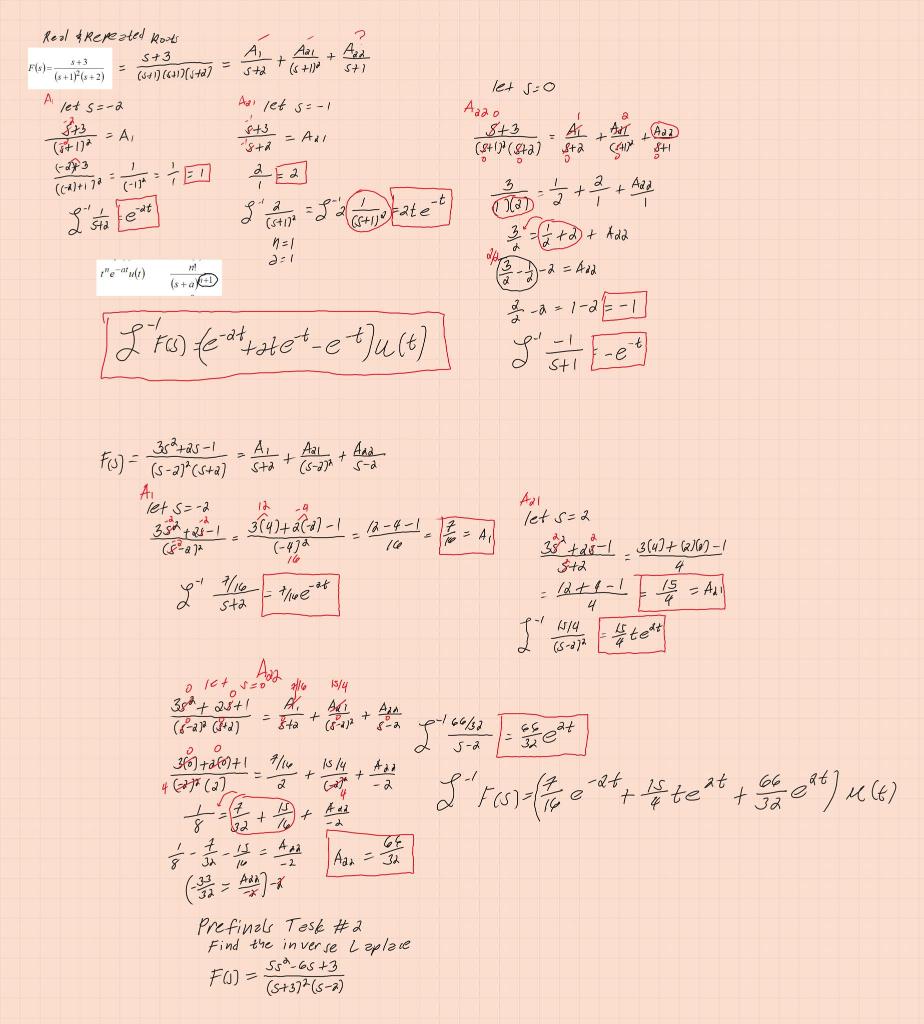 Real & Repeated Roots
F(s) = s+3 / (s+1)²(s+2) = s+3 / (s+1)(s+1)(s+2) = A₁ / s+2 + A₂₁ / (s+1)² + A₂₂ / s+1
A₁ let s=-2
s+3 / (s+1)² = A₁
(-2)+3 / ((-2)+1)² = 1 / (-1)² = 1/1 = 1
ℒ⁻¹ 1 / s+2 = e^-2t
A₂₁ let s=-1
s+3 / s+2 = A₂₁
2/1 = 2
ℒ⁻¹ 2 / (s+1)² = ℒ⁻¹ 2 1 / (s+1)² = 2te^-t
n=1
a=1
tⁿe^-at u(t) n! / (s+a)^n+1
let s=0
A₂₂
s+3 / (s+1)²(s+2) = A₁ / s+2 + A₂₁ / (s+1)² + A₂₂ / s+1
3 / (1)(2) = 1/2 + 2/1 + A₂₂/1
3/2 = 1/2 + 2 + A₂₂
3/2 - 1/2 - 2 = A₂₂
2/2 - 2 = 1-2 = -1
ℒ⁻¹ -1 / s+1 = -e^-t
ℒ⁻¹ F(s) = (e^-2t + 2te^-t - e^-t) u(t)
F(s) = 3s²+2s-1 / (s-2)²(s+2) = A₁ / s+2 + A₂₁ / (s-2)² + A₂₂ / s-2
A₁
let s=-2
3s²+2s-1 / (s-2)² = 3(4)+2(-2)-1 / (-4)² = 12-4-1 / 16 = 7/16 = A₁
12 -4
16
ℒ⁻¹ 7/16 / s+2 = 7/16 e^-2t
A₂₁
let s=2
3s²+2s-1 / s+2 = 3(4)+(2)(2)-1 / 4
= 12+4-1 / 4 = 15/4 = A₂₁
ℒ⁻¹ 15/4 / (s-2)² = 15/4 te^2t
A₂₂
let s=0
7/16 15/4
3s²+2s+1 / (s-2)²(s+2) = A₁ / s+2 + A₂₁ / (s-2)² + A₂₂ / s-2
3(0)+2(0)+1 / (-2)²(2) = 7/16 / 2 + 15/4 / (-2)² + A₂₂ / -2
1/8 = 7/32 + 15/16 + A₂₂ / -2
1/8 - 7/32 - 15/16 = A₂₂ / -2
A₂₂ = 66/32
(-33/32 = A₂₂ / -2) -2
ℒ⁻¹ 66/32 / s-2 = 66/32 e^2t
ℒ⁻¹ F(s) = (7/16 e^-2t + 15/4 te^2t + 66/32 e^2t) u(t)
Prefinals Task #2
Find the inverse Laplace
F(s) = 5s²-6s+3 / (s+3)²(s-2)